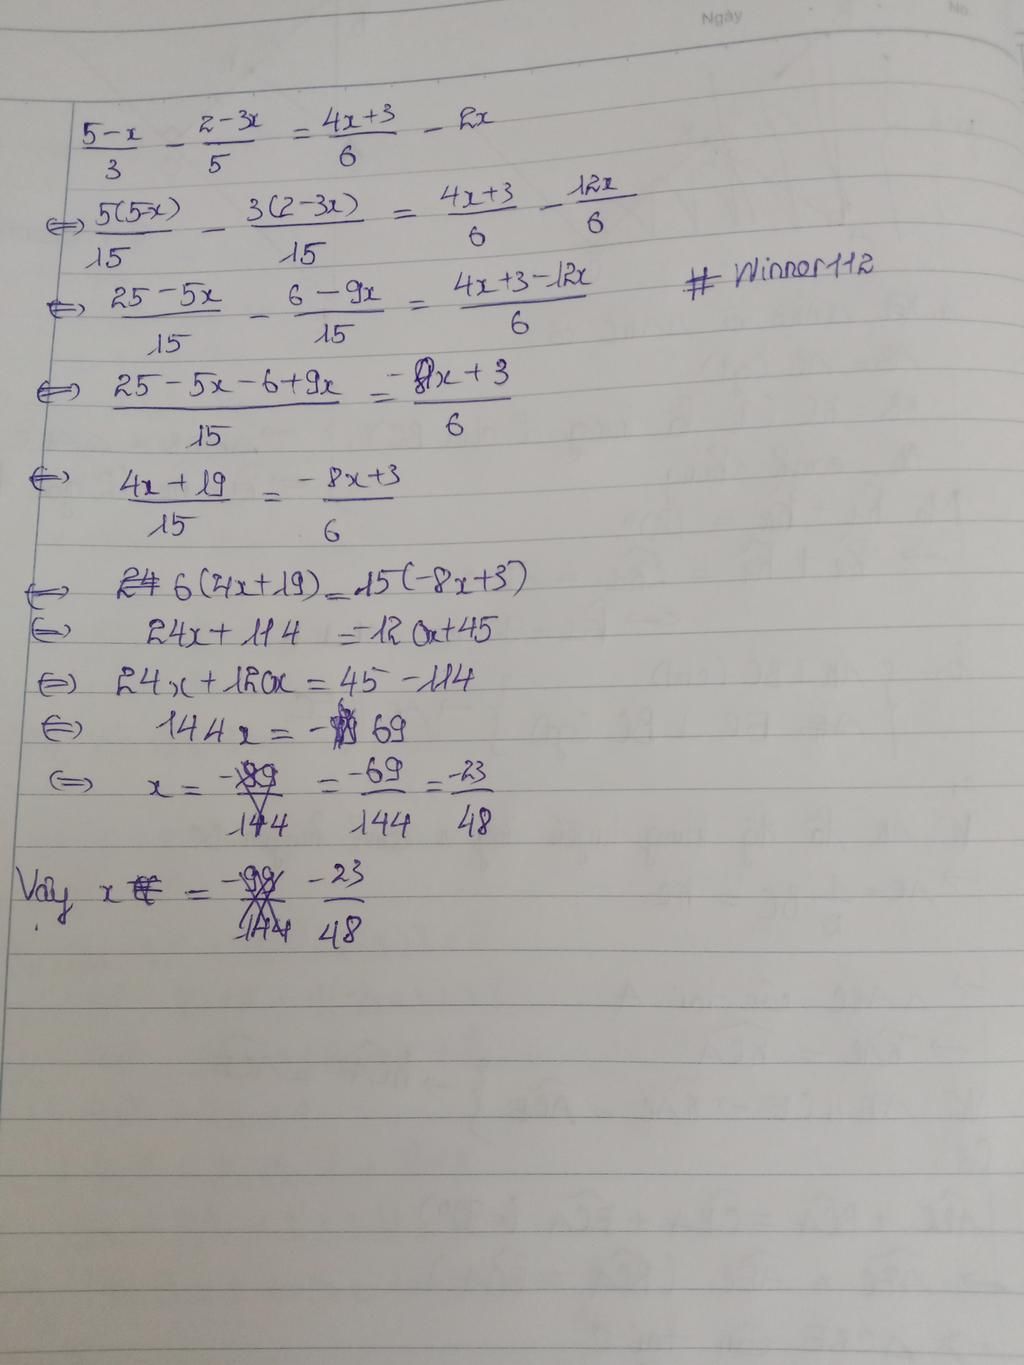 Ngày
No.
(5-x)/3 - (2-3x)/5 = (4x+3)/6 - 2x
⇔ 5(5-x)/15 - 3(2-3x)/15 = (4x+3)/6 - 12x/6
⇔ (25-5x)/15 - (6-9x)/15 = (4x+3-12x)/6 # Winner112
⇔ (25-5x-6+9x)/15 = (-8x+3)/6
⇔ (4x+19)/15 = (-8x+3)/6
⇔ 6(4x+19) = 15(-8x+3)
⇔ 24x+114 = -120x+45
⇔ 24x+120x = 45-114
⇔ 144x = -69
⇔ x = -69/144 = -23/48
Vậy x = -23/48